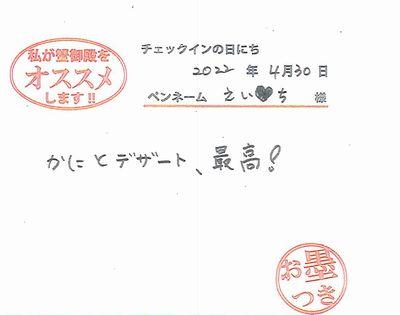 私が蟹御殿を
オススメ
します!!
チェックインの日にち
2022 年 4月30日
ペンネーム えい♥ち 様
かにとデザート、最高!
お墨
つき